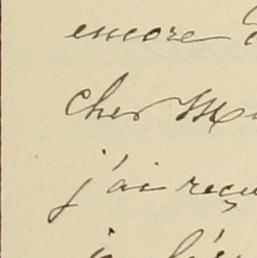 encore
cher M
j'ai reçu